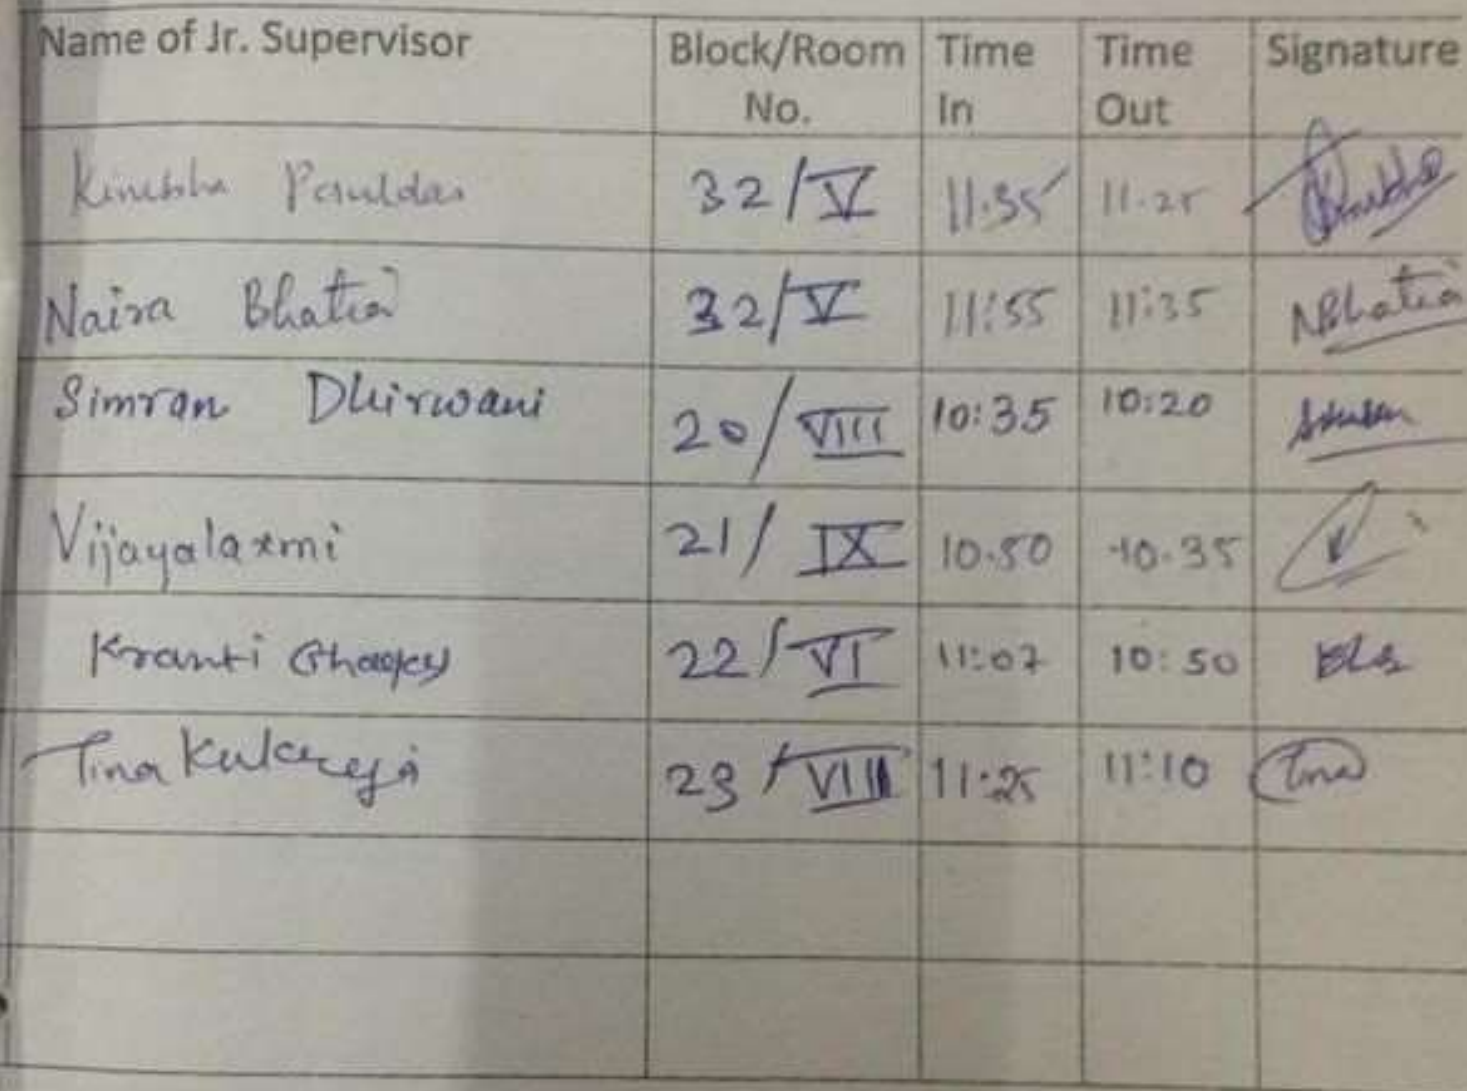 Name of Jr. Supervisor Block/Room No. Time In Time Out Signature
32/V 11:35 11.25
Naira Bhatia 32/V 11:55 11:35 NBhatia
Simran Dhirwani 20/VIII 10:35 10:20
Vijayalaxmi 21/ IX 10.50 10.35
Kranti 22/VI 11:07 10:50
Tina Kukreja 23/VIII 11:25 11:10 Tina